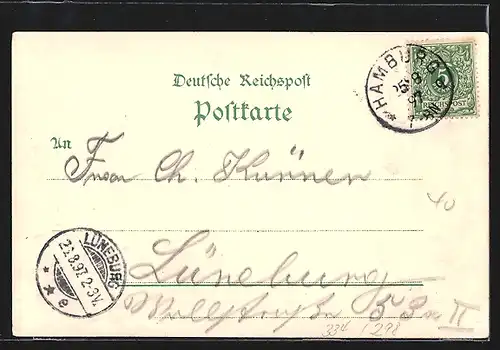 HAMBURG
5
REICHSPOST
Deutsche Reichspost
Postkarte
An
Frau Ch. Künner
40
LÜNEBURG
8.97. 2-3V.
e
Lüneburg
53a II
334 / 278